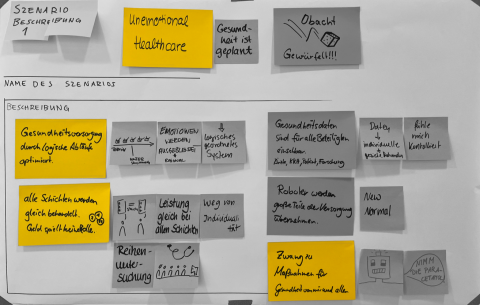 SZENARIO
BESCHREIBUNG
1
Unemotional
Healthcare
Gesund-
heit ist
geplant
Obacht
Gewürfelt!!!
NAME DES SZENARIOS
BESCHREIBUNG
Gesundheitsversorgung
durch logische Abläufe
optimiert.
EMOTIONEN
WERDEN
AUSGEBLENDET
RATIONAL
logisches
geordnetes
System
Gesundheitsdaten
sind für alle Beteiligten
einsehbar.
Daten
individuelle
fühle
mich
kontrolliert
alle Schichten werden
gleich behandelt.
Geld spielt keine Rolle.
Leistung
gleich bei
allen Schichten
Weg von
Individuali
tät
Roboter werden
große Teile der Versorgung
übernehmen.
New
Normal
Reihen-
unter-
suchung
Zwang zu
Maßnahmen für
Gesundheit von und allen
NIMM
DIE